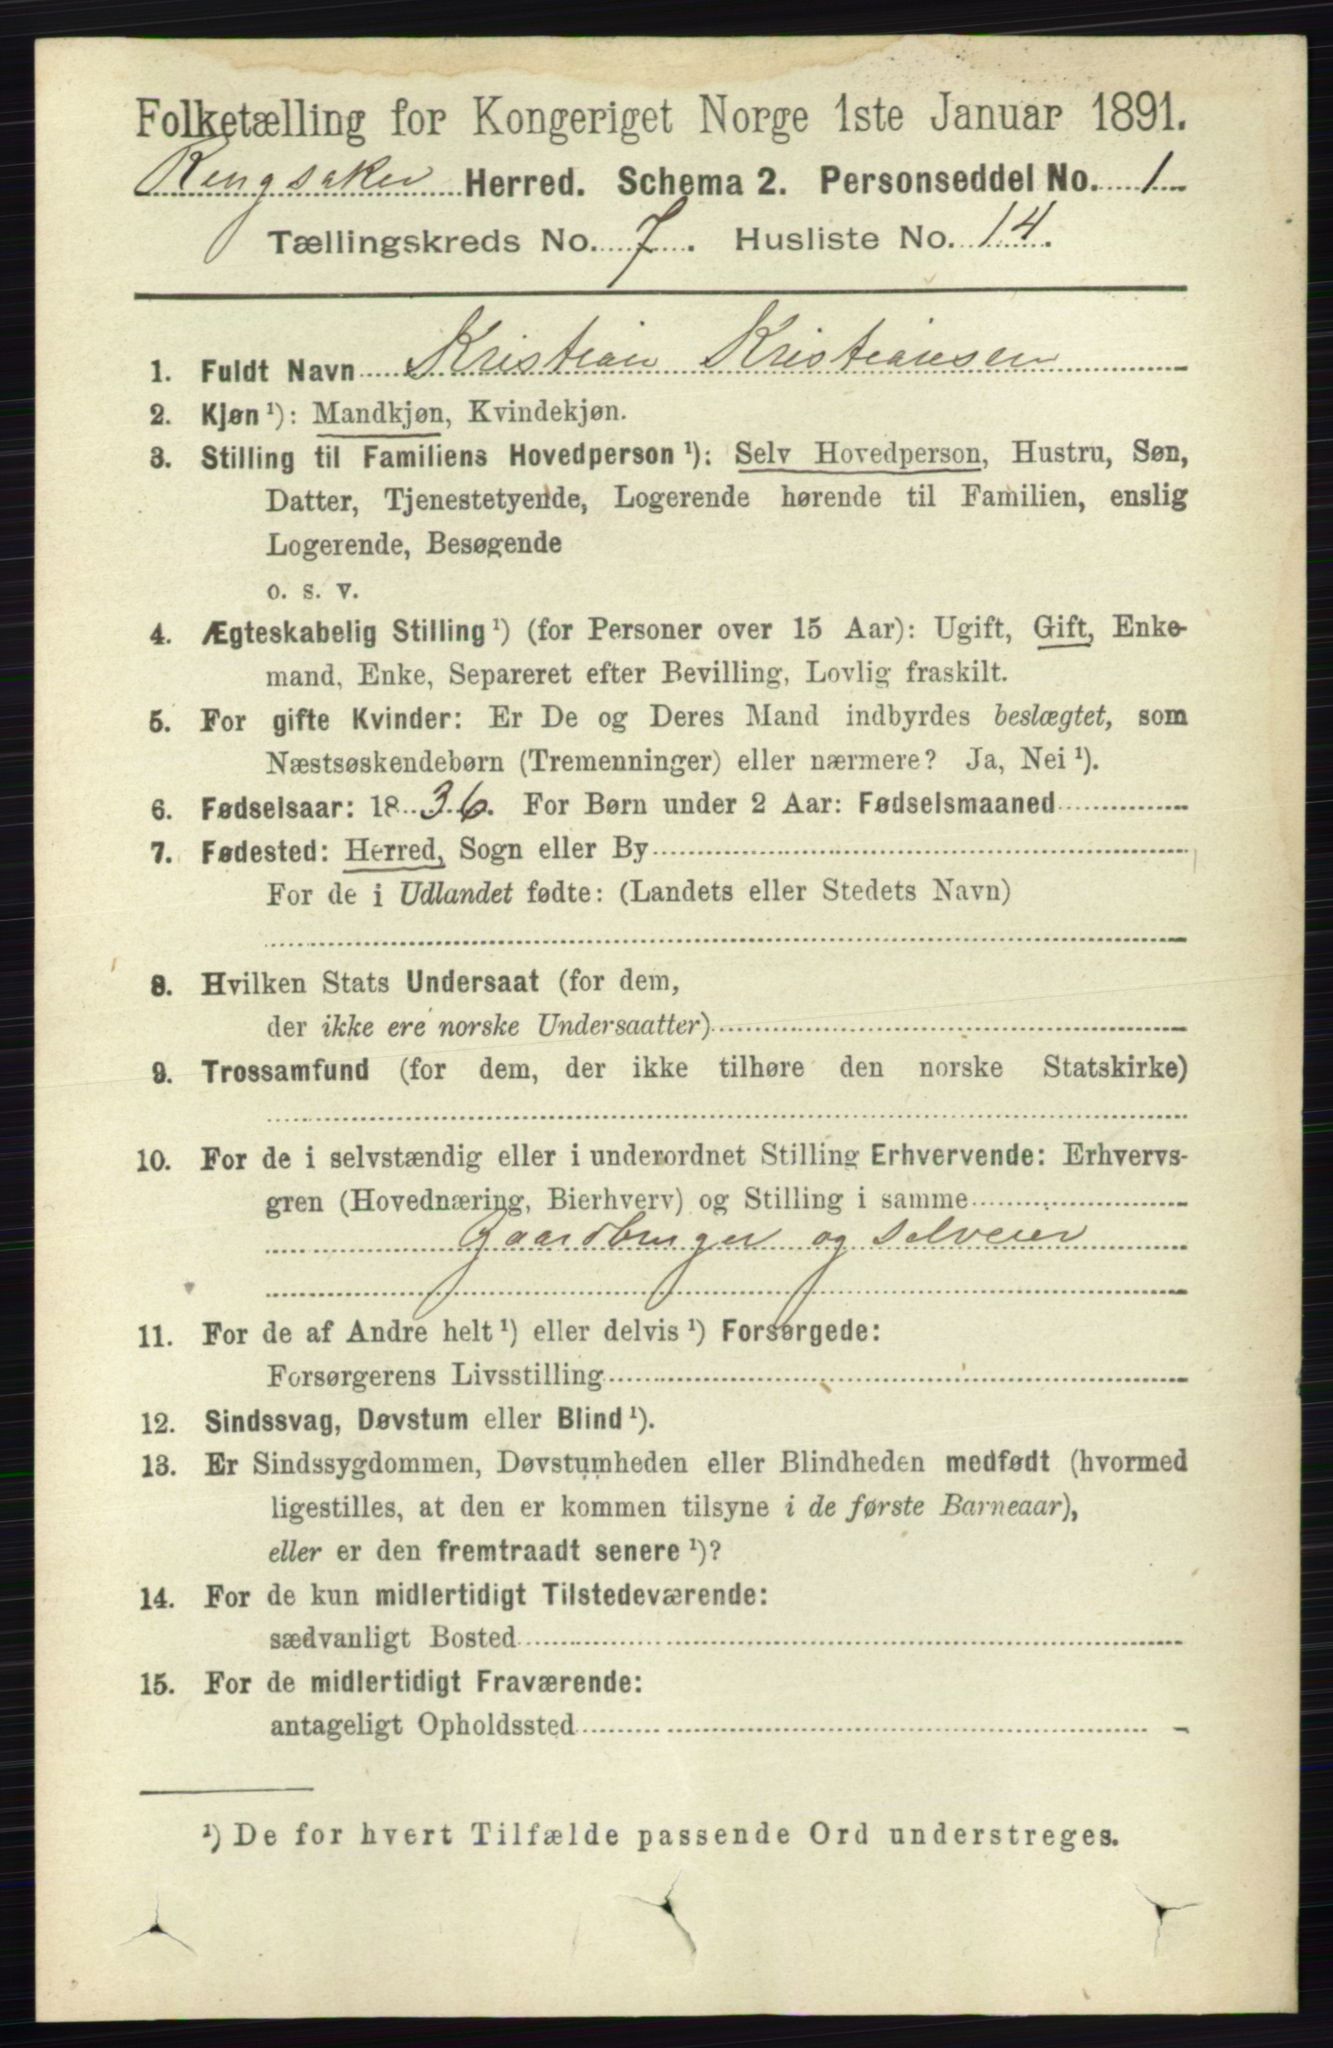 Folketælling for Kongeriget Norge 1ste Januar 1891.
Ringsaker Herred. Schema 2. Personseddel No. 1
Tællingskreds No. 7. Husliste No. 14.
1. Fuldt Navn Kristian Kristiansen
2. Kjøn ¹): Mandkjøn, Kvindekjøn.
3. Stilling til Familiens Hovedperson ¹): Selv Hovedperson, Hustru, Søn,
Datter, Tjenestetyende, Logerende hørende til Familien, enslig
Logerende, Besøgende
o. s. v.
4. Ægteskabelig Stilling ¹) (for Personer over 15 Aar): Ugift, Gift, Enke-
mand, Enke, Separeret efter Bevilling, Lovlig fraskilt.
5. For gifte Kvinder: Er De og Deres Mand indbyrdes beslægtet, som
Næstsøskendebørn (Tremenninger) eller nærmere? Ja, Nei ¹).
6. Fødselsaar: 1836. For Børn under 2 Aar: Fødselsmaaned
7. Fødested: Herred, Sogn eller By
For de i Udlandet fødte: (Landets eller Stedets Navn)
8. Hvilken Stats Undersaat (for dem,
der ikke ere norske Undersaatter)
9. Trossamfund (for dem, der ikke tilhøre den norske Statskirke)
10. For de i selvstændig eller i underordnet Stilling Erhvervende: Erhvervs-
gren (Hovednæring, Bierhverv) og Stilling i samme
Gaardbruger og selveier
11. For de af Andre helt ¹) eller delvis ¹) Forsørgede:
Forsørgerens Livsstilling
12. Sindssvag, Døvstum eller Blind ¹).
13. Er Sindssygdommen, Døvstumheden eller Blindheden medfødt (hvormed
ligestilles, at den er kommen tilsyne i de første Barneaar),
eller er den fremtraadt senere ¹)?
14. For de kun midlertidigt Tilstedeværende:
sædvanligt Bosted
15. For de midlertidigt Fraværende:
antageligt Opholdssted
¹) De for hvert Tilfælde passende Ord understreges.